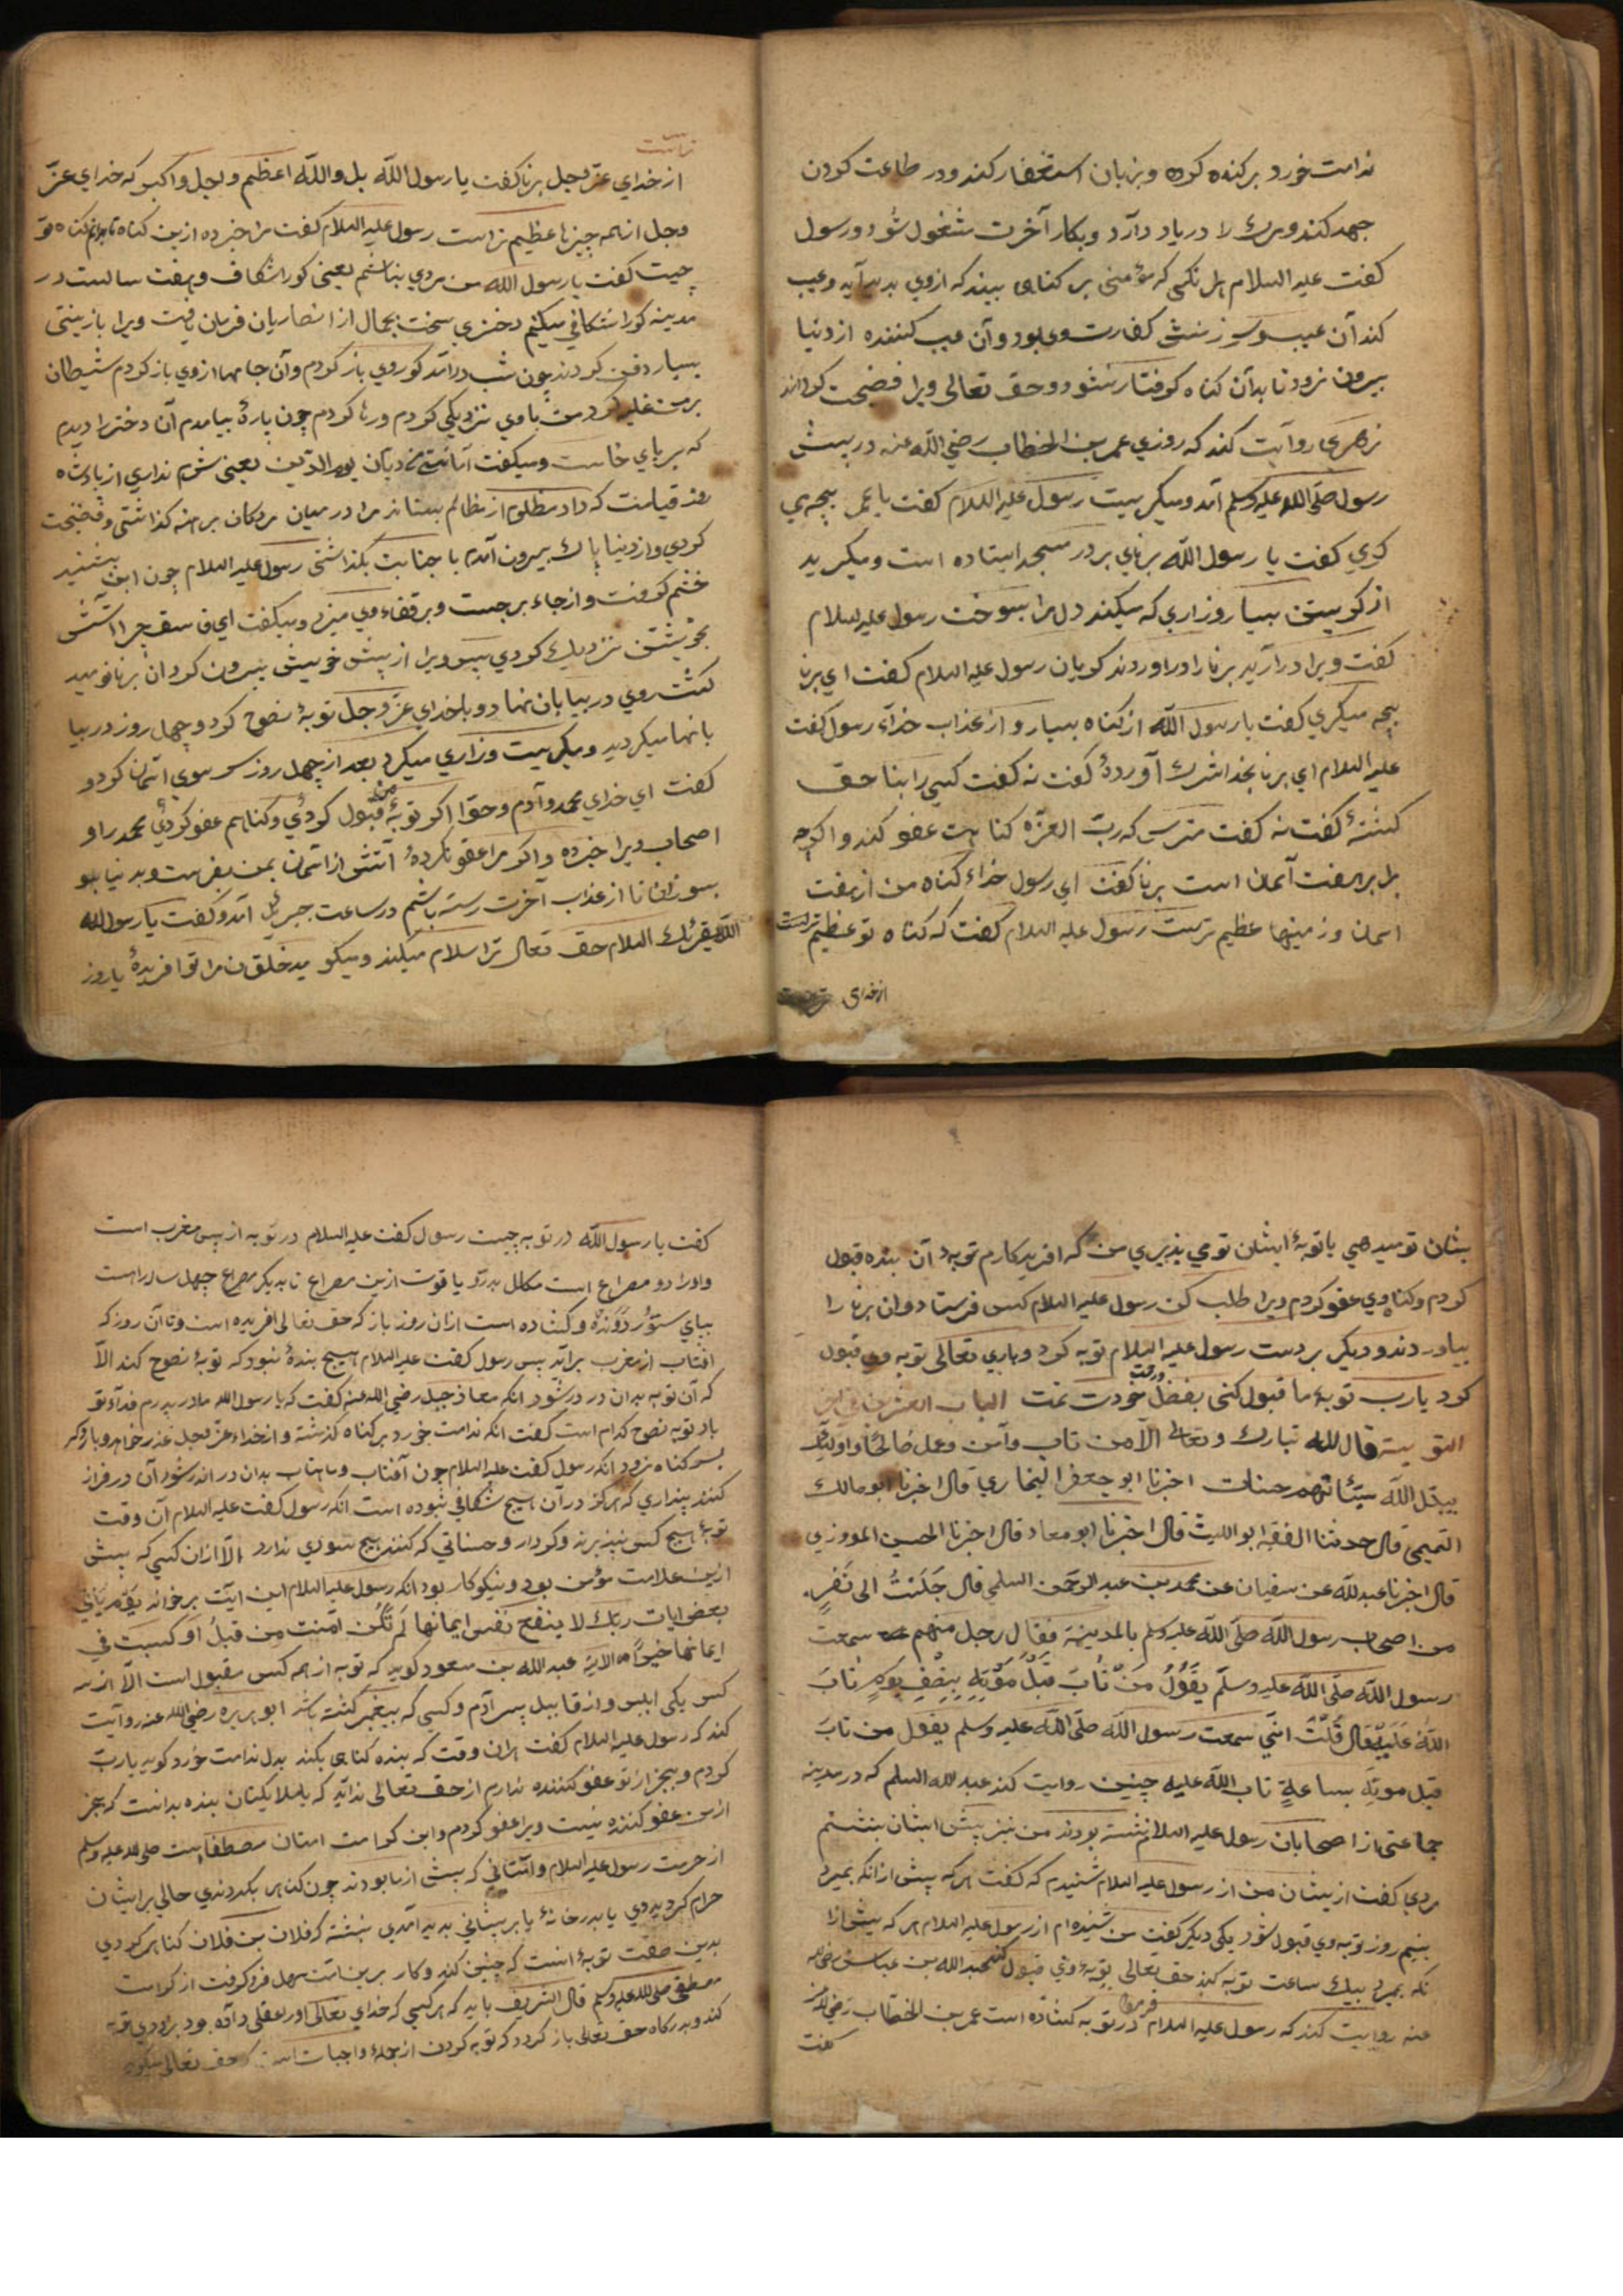 ندامت خورد بر کنده کرده و بزبان استغفار کند و در طاعت کردن
جهد کند و مرک را در یاد دارد و بکار آخرت مشغول شود و رسول
کفت علیه السلام هر نکس که مؤمنی بر کناهی بیند که ازوی بدید آید و عیب
کند آن عیب و سرزنش کفارت وی بود و آن عیب کننده از دنیا
بیرون نرود تا بدان کناه کرفتار نشود و حق تعالی ویرا فضیحت کرداند
زهری روایت کند که روزی عمر بن الخطاب رضی الله عنه در پیش
رسول صلی الله علیه وسلم آمد و میکریست رسول علیه السلام کفت یا عمر بچه می
کریی کفت یا رسول الله برنای بر در مسجد ایستاده است و میکرید
از کریستن بسیار و زاری که میکند دل مرا بسوخت رسول علیه السلام
کفت ویرا در آرید برنا را در اوردند کریان رسول علیه السلام کفت ای برنا
بچه میکری کفت یا رسول الله از کناه بسیار و از عذاب خدآء رسول کفت
علیه السلام ای برنا بخدا شرک آوردۀ کفت نه کفت کسی را بناحق
کشتۀ کفت نه کفت مترس که رب العزه کناهت عفو کند و اکرچه
برابر هفت آسمان است برنا کفت ای رسول خداء کناه من از هفت
اسمان و زمینها عظیم ترست رسول علیه السلام کفت که کناه تو عظیم ترست
از خدای
تراست
از خدای عز وجل برنا کفت یا رسول الله بل والله اعظم واجل واکبر که خدای عز
وجل از همه چیزها عظیم تراست رسول علیه السلام کفت مرا خبر ده ازین کناه تا بدانم کناه تو
چیست کفت یا رسول الله من مردی نباشم یعنی کور اشکاف و هفت سالست در
مدینه کور اشکافی میکنم دختری سخت بجمال از انصاریان فرمان یافت ویرا بازینتی
بسیار دفن کردند چون شب درآمد کور وی باز کردم وآن جامها ازوی باز کردم شیطان
بر من غلبه کرد من با وی نزدیکی کردم ورها کردم چون پارۀ بیامدم آن دختر را دیدم
که بر پای خاست و میکفت دیان یوم الدین یعنی شرم نداری از پادشاه
روز قیامت که داد مظلوم از ظالم بستاند مرا در میان مردکان برهنه کذاشتی و فضیحت
کردی و از دنیا پاک بیرون آمدم با جنابت بکذاشتی رسول علیه السلام چون این بشنید
خشم کرفت و از جاء برجست و بر قفاء وی میزد و میکفت ای فاسق چرا آتش
بخویشتن نزدیک کردی پس ویرا از پیش خویش بیرون کرد آن برنا نومید
کشت روی در بیابان نهاد و با خدای عز وجل توبۀ نصوح کرد و چهل روز در بیا
بانها میکردید و میکریست و زاری میکرد بعد از چهل روز سر سوی آسمان کرد و
کفت ای خدای محمد و آدم و حوا اکر توبۀ من قبول کردی و کناهم عفو کردی محمد را و
اصحاب ویرا خبر ده و اکر مرا عفو نکردۀ آتش از آسمان بمن بفرست و بدنیا
بسوزان تا از عذاب آخرت رسته باشم در ساعت جبرئیل آمد و کفت یا رسول الله
الله یقرئک السلام حق تعالی ترا سلام میکند و میکوید خلقان مرا تو افریدۀ یا روز
بیشان تو میدهی یا توبۀ ایشان تو می پذیری من که افریدکارم توبۀ آن بنده قبول
کردم و کناه وی عفو کردم ویرا طلب کن رسول علیه السلام کس فرستاد و ان برنا را
بیاوردند و دیکر بر دست رسول علیه السلام توبه کرد و باری تعالی توبه وی قبول
کرد یا رب توبۀ ما قبول کنی بفضل و رحمت خودت تمت الباب العشرون فی
التوبة قال الله تبارک وتعالی الا من تاب وآمن وعمل صالحا فاولئک
یبدل الله سیئاتهم حسنات اخبرنا ابو جعفر البخاری قال اخبرنا ابو مالک
التمیمی قال حدثنا الفقیه ابو اللیث قال اخبرنا ابو معاد قال اخبرنا الحسین المروزی
قال اخبرنا عبد الله عن سفیان عن محمد بن عبد الرحمن السلمی قال جلست الی نفر
من اصحاب رسول الله صلی الله علیه وسلم بالمدینة فقال رجل منهم سمعت
رسول الله صلی الله علیه وسلم یقول من تاب قبل موته بنصف یوم تاب
الله علیه قال قلت انی سمعت رسول الله صلی الله علیه وسلم یقول من تاب
قبل موته بساعة تاب الله علیه چنین روایت کند عبد الله السلم که در مدینه
جماعتی از اصحابان رسول علیه السلام نشسته بودند من نیز پیش ایشان نشستم
مردی کفت ازیشان من از رسول علیه السلام شنیدم که کفت هر که پیش ازانکه بمیرد
بنیم روز توبه وی قبول شود یکی دیکر کفت من شنیده ام از رسول علیه السلام هر که پیش ازا
نکه بمیرد بیک ساعت توبه کند حق تعالی توبۀ وی قبول کند عبد الله بن عباس رضی الله
عنه روایت کند که رسول علیه السلام فرمود در توبه کشاده است عمر بن الخطاب رضی الله عنه
کفت
کفت یا رسول الله در توبه چیست رسول کفت علیه السلام در توبه از پس مغرب است
و اورا دو مصراع است مکلل بدر و یاقوت ازین مصراع تا بدیکر مصراع چهل ساله راهست
بپای ستور دونده و کشاده است ازان روز باز که حق تعالی افریده است و تا آن روز که
افتاب از مغرب برآید پس رسول کفت علیه السلام هیچ بندۀ نبود که توبۀ نصوح کند الا
که آن توبه بدان در در شود انکه معاذ جبل رضی الله عنه کفت که یا رسول الله مادر پدرم فدآء تو
باد توبه نصوح کدام است کفت انکه ندامت خورد بر کناه کذشته و از خداء عز وجل عذر خواهد و باز دیکر
بسر کناه نرود انکه رسول کفت علیه السلام چون آفتاب و ماهتاب بدان در اندر شود آن در فراز
کنند پنداری که هرکز در آن هیچ شکافی نبوده است انکه رسول کفت علیه السلام آن وقت
توبۀ هیچ کس نپذیرند و کردار و حسناتی که کنند هیچ سودی ندارد الا ازان کسی که پیش
ازین علامت مؤمن بود و نیکوکار بود انکه رسول علیه السلام این آیت برخواند یوم یأتی
بعض ایات ربک لا ینفع نفس ایمانها لم تکن آمنت من قبل او کسبت فی
ایمانها خیرا الایة عبد الله بن مسعود کوید که توبه از همه کس مقبول است الا از سه
کس یکی ابلیس و از قابیل پسر آدم و کسی که پیغمبر کشته باشد ابو هریره رضی الله عنه روایت
کند که رسول علیه السلام کفت هران وقت که بنده کناهی بکند بدل ندامت خورد کوید یا رب
کردم و بجز از تو عفو کننده ندارم از حق تعالی ندا آید که یا ملایکتان بنده بدانست که بجز
از من عفو کننده نیست ویرا عفو کردم و این کرامت امتان مصطفا است صلی الله علیه وسلم
از حرمت رسول علیه السلام و امتانی که پیش از ما بودند چون کناهی بکردندی حالی بر ایشان
حرام کردیدی یا بدر خانۀ یا بر پیشانی پدید آمدی نبشته که فلان بن فلان کناهی کردی
بدین صفت توبۀ است که چنین کند و کار برین امت سهل فرو کرفت از کرامت
مصطفی صلی الله علیه وسلم قال الشریف باید که هر کسی که خدای تعالی اورا عقلی داده بود
کند و بدرکاه حق تعالی باز کردد که توبه کردن از جملۀ واجبات است که حق تعالی میکوید